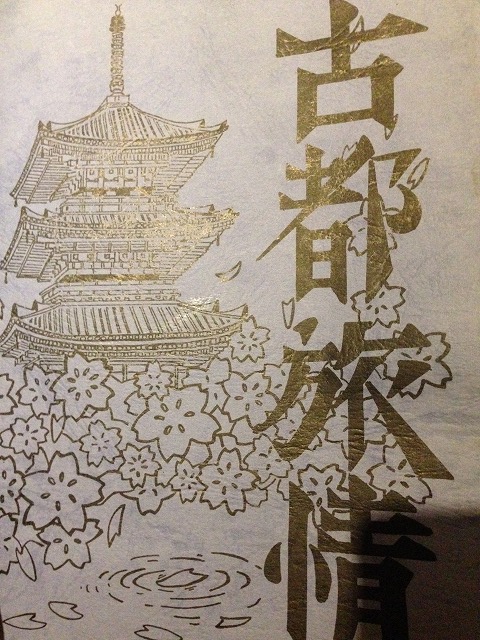 古都旅情